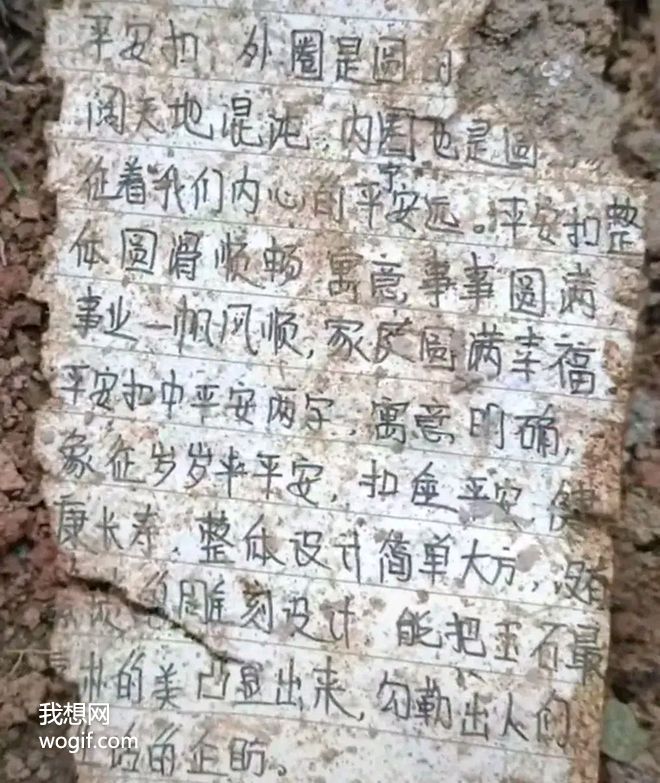 平安扣,外圈是圆的
阔天地混沌,内圈也是圆
征着我们内心的平安宁远。平安扣整
体圆滑顺畅 寓意事事圆满
事业一帆风顺,家庭圆满幸福.
平安扣中平安两字,寓意明确,
象征岁岁平安,扣金平安,健
康长寿.整体设计简单大方,
雕刻设计 能把玉石最
的美凸显出来,勾勒出人们
的企盼。
我想网
wogif.com